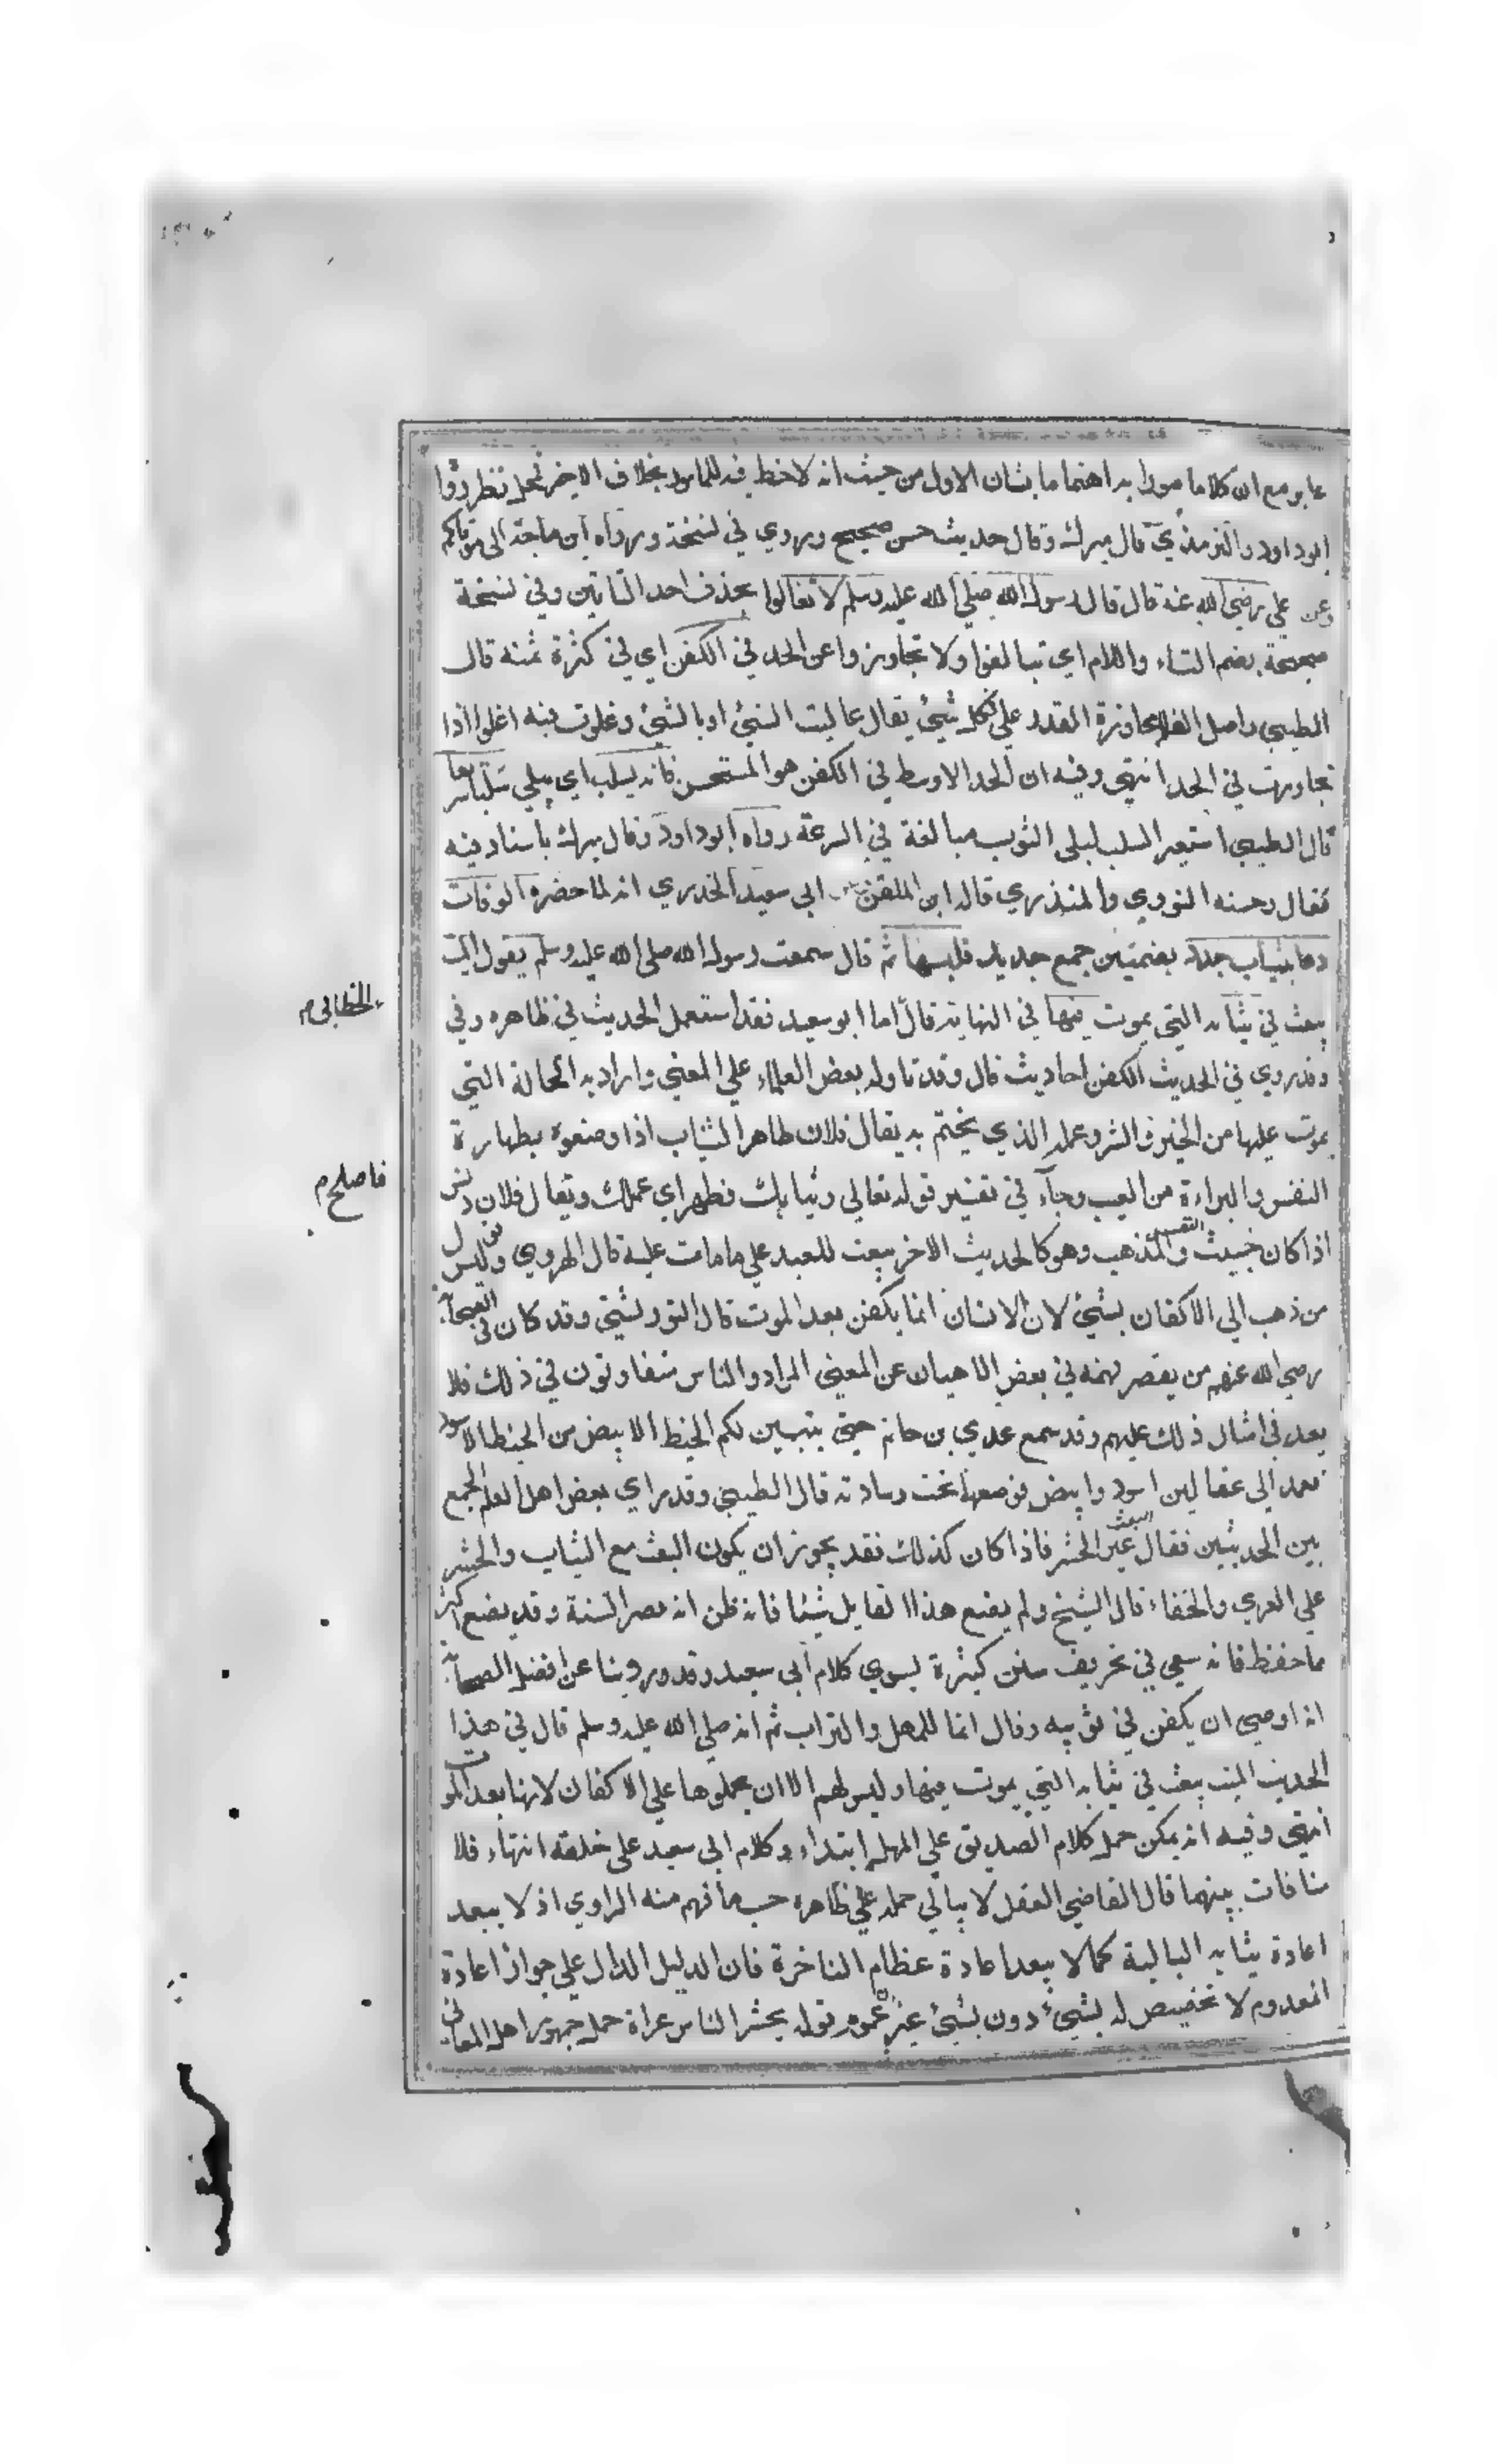 عابر مع ان كلاما مورا به اهتماما بشان الاول من حيث انه لا خط فيه للمامور بخلاف الاخير تحل نظر رواه
ابو داود والترمذي قال ميرك وقال حديث حسن صحيح وروي في نسخة ورواه ابن ماجة الى موتاكم
وعن علي رضي الله عنه قال قال رسول الله صلى الله عليه وسلم لا تغالوا بحذف احد التائين وفي نسخة
صحيحة بضم التاء واللام اي تبالغوا ولا تجاوزوا عن الحد في الكفن اي في كثرة ثمنه قال
الطيبي واصل الغلاء مجاوزة القدر على كل شيئ يقال غاليت الشيئ او بالشيئ وغلوت فيه اغلوا اذا
تجاوزت في الحد انتهى وفيه ان الحد الاوسط في الكفن هو المستحسن فانه يسلب اي يبلي سلبا سريعا
قال الطيبي استعير السلب لبلى الثوب مبالغة في السرعة رواه ابو داود وقال ميرك باسناد فيه
فقال وحسنه النووي والمنذري قاله ابن الملقن وعن ابي سعيد الخدري انه لما حضره الوفات
دعا بثياب جدد بضمتين جمع جديد فلبسها ثم قال سمعت رسول الله صلى الله عليه وسلم يقول الميت
يبعث في ثيابه التي يموت فيها في النهاية قال اما ابو سعيد فقد استعمل الحديث في ظاهره وفي
الخطابي م
وقد روي في الحديث الكفن احاديث قال وقد تاوله بعض العلماء على المعنى واراد به الحالة التي
يموت عليها من الخير والشر وعمله الذي يختم به يقال فلان طاهر الثياب اذا وصفوه بطهارة
النفس والبراءة من العيب وجاء في تفسير قوله تعالى وثيابك فطهر اي عملك ويقال فلان دنس
فاصلح م
اذا كان خبيث النفس والمذهب وهو كالحديث الاخر يبعث للعبد على ما مات عليه قال الهروي وليس قول
من ذهب الي الاكفان بشيئ لان الانسان انما يكفن بعد الموت قال التوربشتي وقد كان في الصحابة
رضي الله عنهم من يقصر فهمه في بعض الاحيان عن المعنى المراد والناس متفاوتون في ذلك فلا
يعد في امثال ذلك عليهم وقد سمع عدي بن حاتم حتى يتبين لكم الخيط الابيض من الخيط الاسود
فعمد الى عقالين اسود وابيض فوضعها تحت وسادته قال الطيبي وقد راي بعض اهل العلم الجمع
بين الحديثين فقال البعث غير الحشر فاذا كان كذلك فقد يجوز ان يكون البعث مع الثياب والحشر
على العري والحفاء قال الشيخ ولم يصنع هذا القايل شيئا فانه ظن انه نصر السنة وقد يضع اكثر
ما حفظ فانه سعى في تحريف سنن كثيرة ليسوي كلام ابي سعيد وقد وروينا عن افضل الصحابة
انه اوصى ان يكفن في ثوبيه وقال انما للمهل والتراب ثم انه صلى الله عليه وسلم قال في هذا
الحديث الميت يبعث في ثيابه التي يموت فيها وليس لهم الا ان يحملوها على الاكفان لانها بعد الموت
انتهى وفيه انه يمكن حمل كلام الصديق على المهل ابتداء وكلام ابي سعيد على خلقه انتهاء فلا
منافات بينهما قال القاضي العقل لا يبالي حمله على ظاهره حسب ما فهم منه الراوي اذ لا يبعد
اعادة ثيابه البالية كما لا يبعد اعادة عظام الناخرة فان الدليل الدال على جواز اعادة
المعدوم لا تخصيص له بشيئ دون بشيئ غير ان عموم قوله يحشر الناس عراة حمل جمهور اهل المعاني